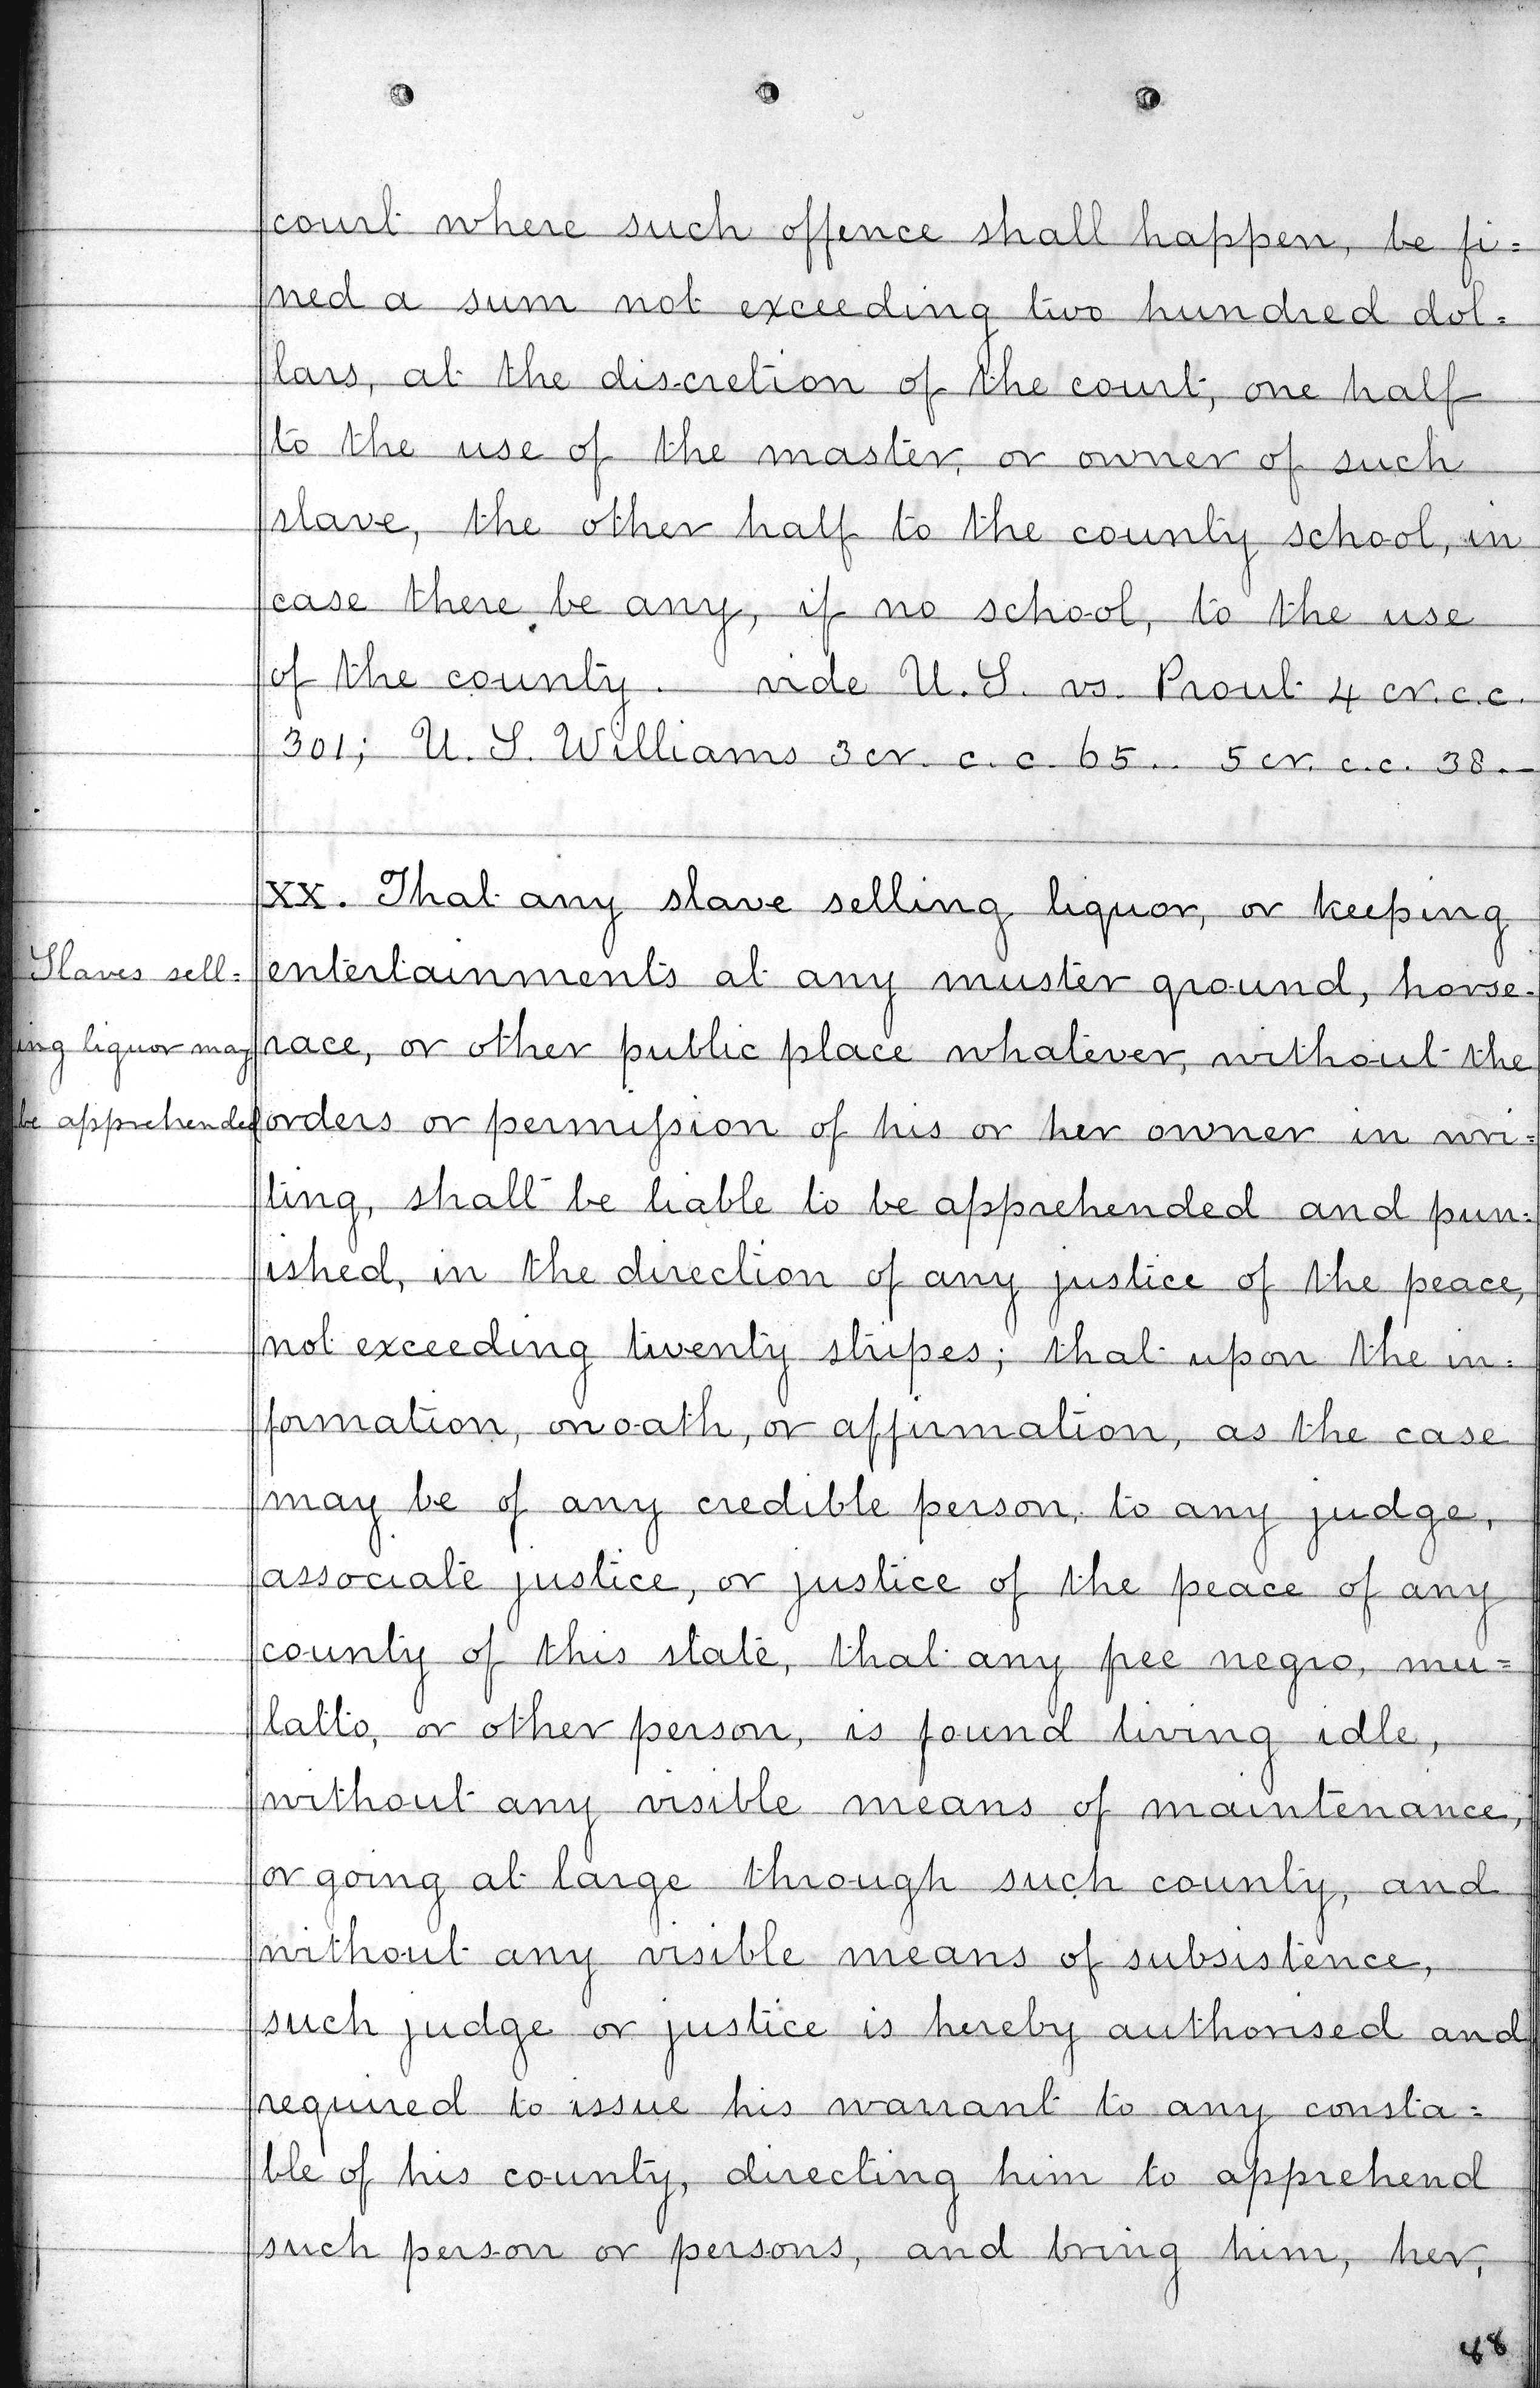 court where such offence shall happen, be fi=
ned a sum not exceeding two hundred dol=
lars, at the discretion of the court, one half
to the use of the master, or owner of such
slave, the other half to the county school, in
case there be any, if no school, to the use
of the county. vide U.S. vs. Prout 4 cr.c.c.
301; U.S. Williams 3 cr. c.c. 65.. 5 cr. c.c. 38.—
XX. That any slave selling liquor, or keeping
Slaves sell=
ing liquor may
be apprehended
entertainments at any muster ground, horse-
race, or other public place whatever, without the
orders or permission of his or her owner in wri=
ting, shall be liable to be apprehended and pun=
ished, in the direction of any justice of the peace,
not exceeding twenty stripes; that upon the in=
formation, on oath, or affirmation, as the case
may be of any credible person, to any judge,
associate justice, or justice of the peace of any
county of this state, that any free negro, mu=
latto, or other person, is found living idle,
without any visible means of maintenance,
or going at large through such county, and
without any visible means of subsistence,
such judge or justice is hereby authorised and
required to issue his warrant to any consta=
ble of his county, directing him to apprehend
such person or persons, and bring him, her,
48